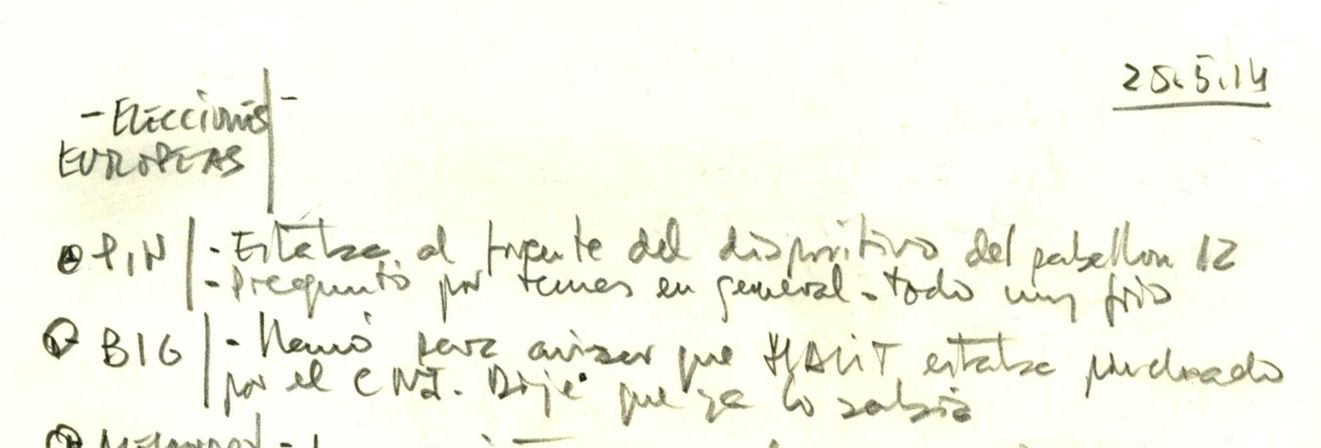 25.5.14
- Elecciones -
EUROPEAS
PIN - Estaba al frente del dispositivo del pabellon 12
- Preguntó por temas en general - todo muy frio
BIG - Llamó para avisar que estaba pinchado
por el CNI. Dije que ya lo sabía